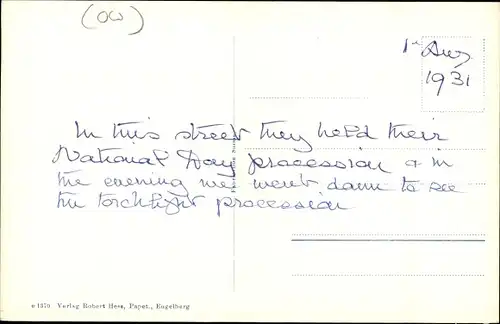 (OW)
1st Aug
1931
In this street they held their
National Day procession & in
the evening we went down to see
the torchlight procession
e 1370 Verlag Robert Hess, Papet., Engelberg